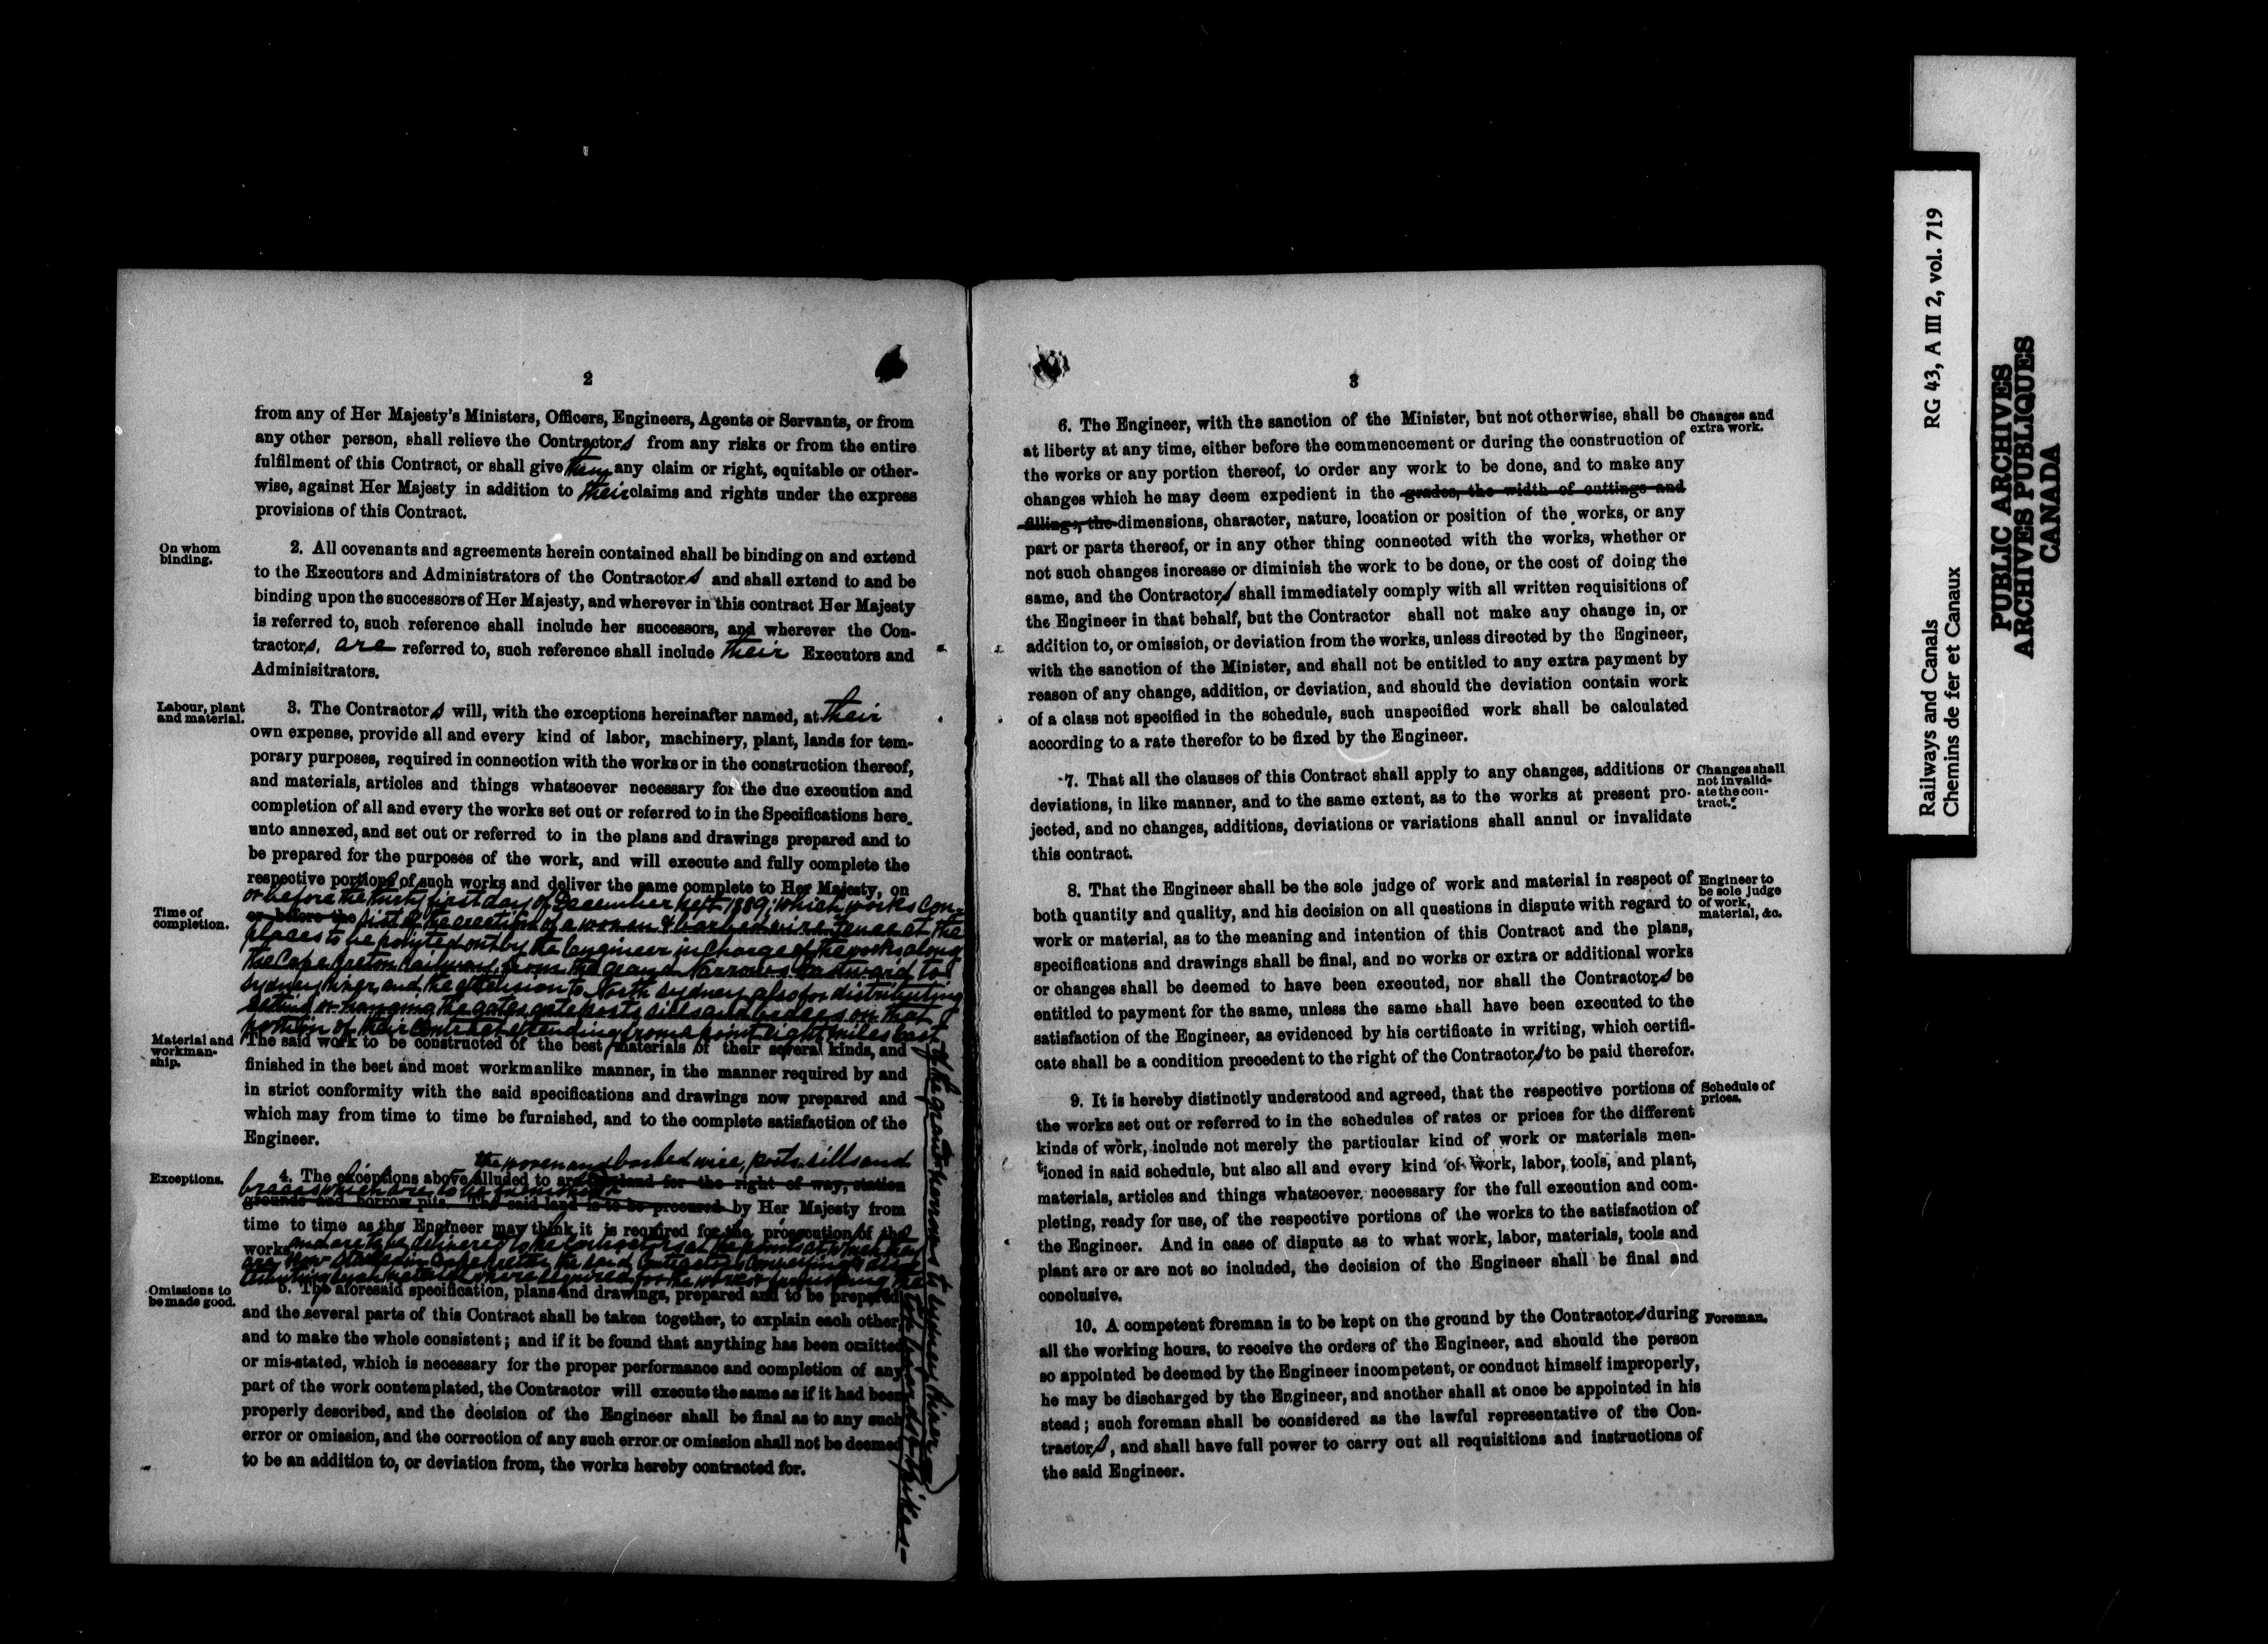 2
from any of Her Majesty's Ministers, Officers, Engineers, Agents or Servants, or from
any other person, shall relieve the Contractors from any risks or from the entire
fulfilment of this Contract, or shall give them any claim or right, equitable or other-
wise, against Her Majesty in addition to their claims and rights under the express
provisions of this Contract.
On whom
binding.
2. All covenants and agreements herein contained shall be binding on and extend
to the Executors and Administrators of the Contractors and shall extend to and be
binding upon the successors of Her Majesty, and wherever in this contract Her Majesty
is referred to, such reference shall include her successors, and wherever the Con-
tractors, are referred to, such reference shall include their Executors and
Adminisitrators.
Labour, plant
and material.
3. The Contractors will, with the exceptions hereinafter named, at their
own expense, provide all and every kind of labor, machinery, plant, lands for tem-
porary purposes, required in connection with the works or in the construction thereof,
and materials, articles and things whatsoever necessary for the due execution and
completion of all and every the works set out or referred to in the Specifications here-
unto annexed, and set out or referred to in the plans and drawings prepared and to
be prepared for the purposes of the work, and will execute and fully complete the
respective portions of such works and deliver the same complete to Her Majesty, on
or before the thirty first day of December next 1889; which works con-
Time of
completion.
or before the sist of the erection of a woven & barbed wire fence at the
places to be pointed out by the Engineer in charge of the works along
the Cape Breton Railway from the grand Narrows Eastward to
Sydney Nher and the extension to North Sydney also for distributing
setting or hanging the gates, gate posts sills and braces on that
portion of their contract extending from a point eight miles east
of the grand Narrows to Sydney
Material and
workman-
ship.
The said work to be constructed of the best materials of their several kinds, and
finished in the best and most workmanlike manner, in the manner required by and
in strict conformity with the said specifications and drawings now prepared and
which may from time to time be furnished, and to the complete satisfaction of the
Engineer.
the woven and barbed wire, posts, sills and
Exceptions.
4. The exceptions above alluded to are the land for the right of way, station
braces which are to be furnished
grounds and borrow pits. The said land is to be procured by Her Majesty from
time to time as the Engineer may think it is required for the prosecution of the
works, and are to be delivered to the Contractors at the points at which they
are now the said Contractors conveying & dist-
ributing such material where required for the works & furnishing the
and spikes-
Omissions to
be made good.
5. The aforesaid specification, plans and drawings, prepared and to be prepared
and the several parts of this Contract shall be taken together, to explain each other,
and to make the whole consistent; and if it be found that anything has been omitted
or mis-stated, which is necessary for the proper performance and completion of any
part of the work contemplated, the Contractor will execute the same as if it had been
properly described, and the decision of the Engineer shall be final as to any such
error or omission, and the correction of any such error or omission shall not be deemed
to be an addition to, or deviation from, the works hereby contracted for.
3
6. The Engineer, with the sanction of the Minister, but not otherwise, shall be
Changes and
extra work.
at liberty at any time, either before the commencement or during the construction of
the works or any portion thereof, to order any work to be done, and to make any
changes which he may deem expedient in the grades, the width of cuttings and
fillings, the dimensions, character, nature, location or position of the works, or any
part or parts thereof, or in any other thing connected with the works, whether or
not such changes increase or diminish the work to be done, or the cost of doing the
same, and the Contractors shall immediately comply with all written requisitions of
the Engineer in that behalf, but the Contractor shall not make any change in, or
addition to, or omission, or deviation from the works, unless directed by the Engineer,
with the sanction of the Minister, and shall not be entitled to any extra payment by
reason of any change, addition, or deviation, and should the deviation contain work
of a class not specified in the schedule, such unspecified work shall be calculated
according to a rate therefor to be fixed by the Engineer.
7. That all the clauses of this Contract shall apply to any changes, additions or
Changes shall
not invalid-
ate the con-
tract.
deviations, in like manner, and to the same extent, as to the works at present pro-
jected, and no changes, additions, deviations or variations shall annul or invalidate
this contract.
8. That the Engineer shall be the sole judge of work and material in respect of
Engineer to
be sole judge
of work,
material, &c.
both quantity and quality, and his decision on all questions in dispute with regard to
work or material, as to the meaning and intention of this Contract and the plans,
specifications and drawings shall be final, and no works or extra or additional works
or changes shall be deemed to have been executed, nor shall the Contractors be
entitled to payment for the same, unless the same shall have been executed to the
satisfaction of the Engineer, as evidenced by his certificate in writing, which certifi-
cate shall be a condition precedent to the right of the Contractors to be paid therefor.
9. It is hereby distinctly understood and agreed, that the respective portions of
Schedule of
prices.
the works set out or referred to in the schedules of rates or prices for the different
kinds of work, include not merely the particular kind of work or materials men-
tioned in said schedule, but also all and every kind of work, labor, tools, and plant,
materials, articles and things whatsoever necessary for the full execution and com-
pleting, ready for use, of the respective portions of the works to the satisfaction of
the Engineer. And in case of dispute as to what work, labor, materials, tools and
plant are or are not so included, the decision of the Engineer shall be final and
conclusive.
10. A competent foreman is to be kept on the ground by the Contractors during
Foreman.
all the working hours, to receive the orders of the Engineer, and should the person
so appointed be deemed by the Engineer incompetent, or conduct himself improperly,
he may be discharged by the Engineer, and another shall at once be appointed in his
stead; such foreman shall be considered as the lawful representative of the Con-
tractors, and shall have full power to carry out all requisitions and instructions of
the said Engineer.
Railways and Canals RG 43, A III 2, vol. 719
Chemins de fer et Canaux
PUBLIC ARCHIVES
ARCHIVES PUBLIQUES
CANADA